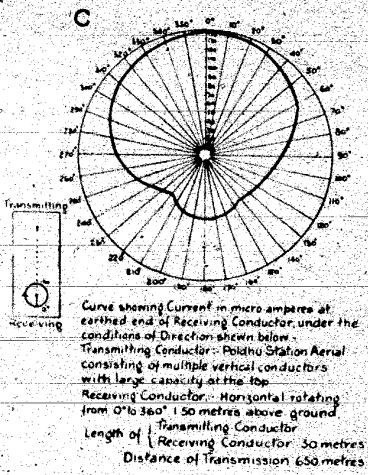 C
0°
10°
20°
30°
40°
50°
60°
70°
80°
90°
100°
110°
120°
130°
140°
150°
160°
170°
180°
190°
200°
210°
220°
260°
270°
280°
290°
300°
310°
320°
330°
340°
350°
Transmitting
Receiving
Curve showing Current in micro-amperes at
earthed end of Receiving Conductor, under the
conditions of Direction shewn below -
Transmitting Conductor :- Poldhu Station Aerial
consisting of multiple vertical conductors
with large capacity at the top
Receiving Conductor :- Horizontal rotating
from 0° to 360° 1.50 metres above ground
Length of { Transmitting Conductor
Receiving Conductor 30 metres
Distance of Transmission 650 metres